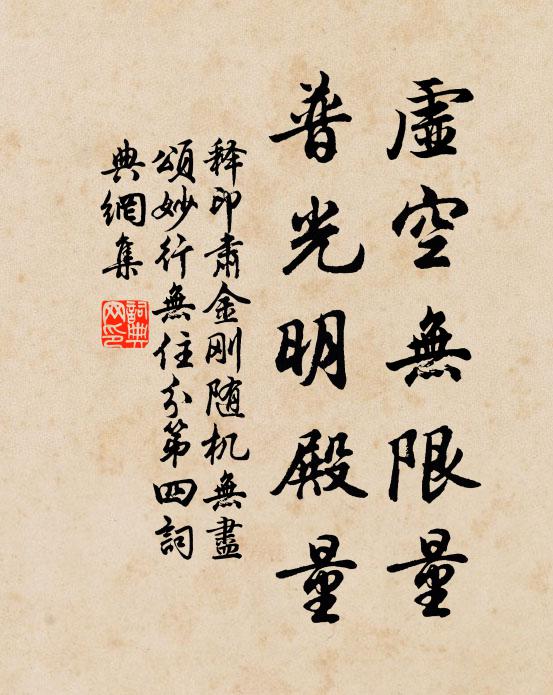 虛空無限量
普光明殿量
释印肃金刚随机無盡
頌妙行無住分第四詞
典網集
詞典
网印